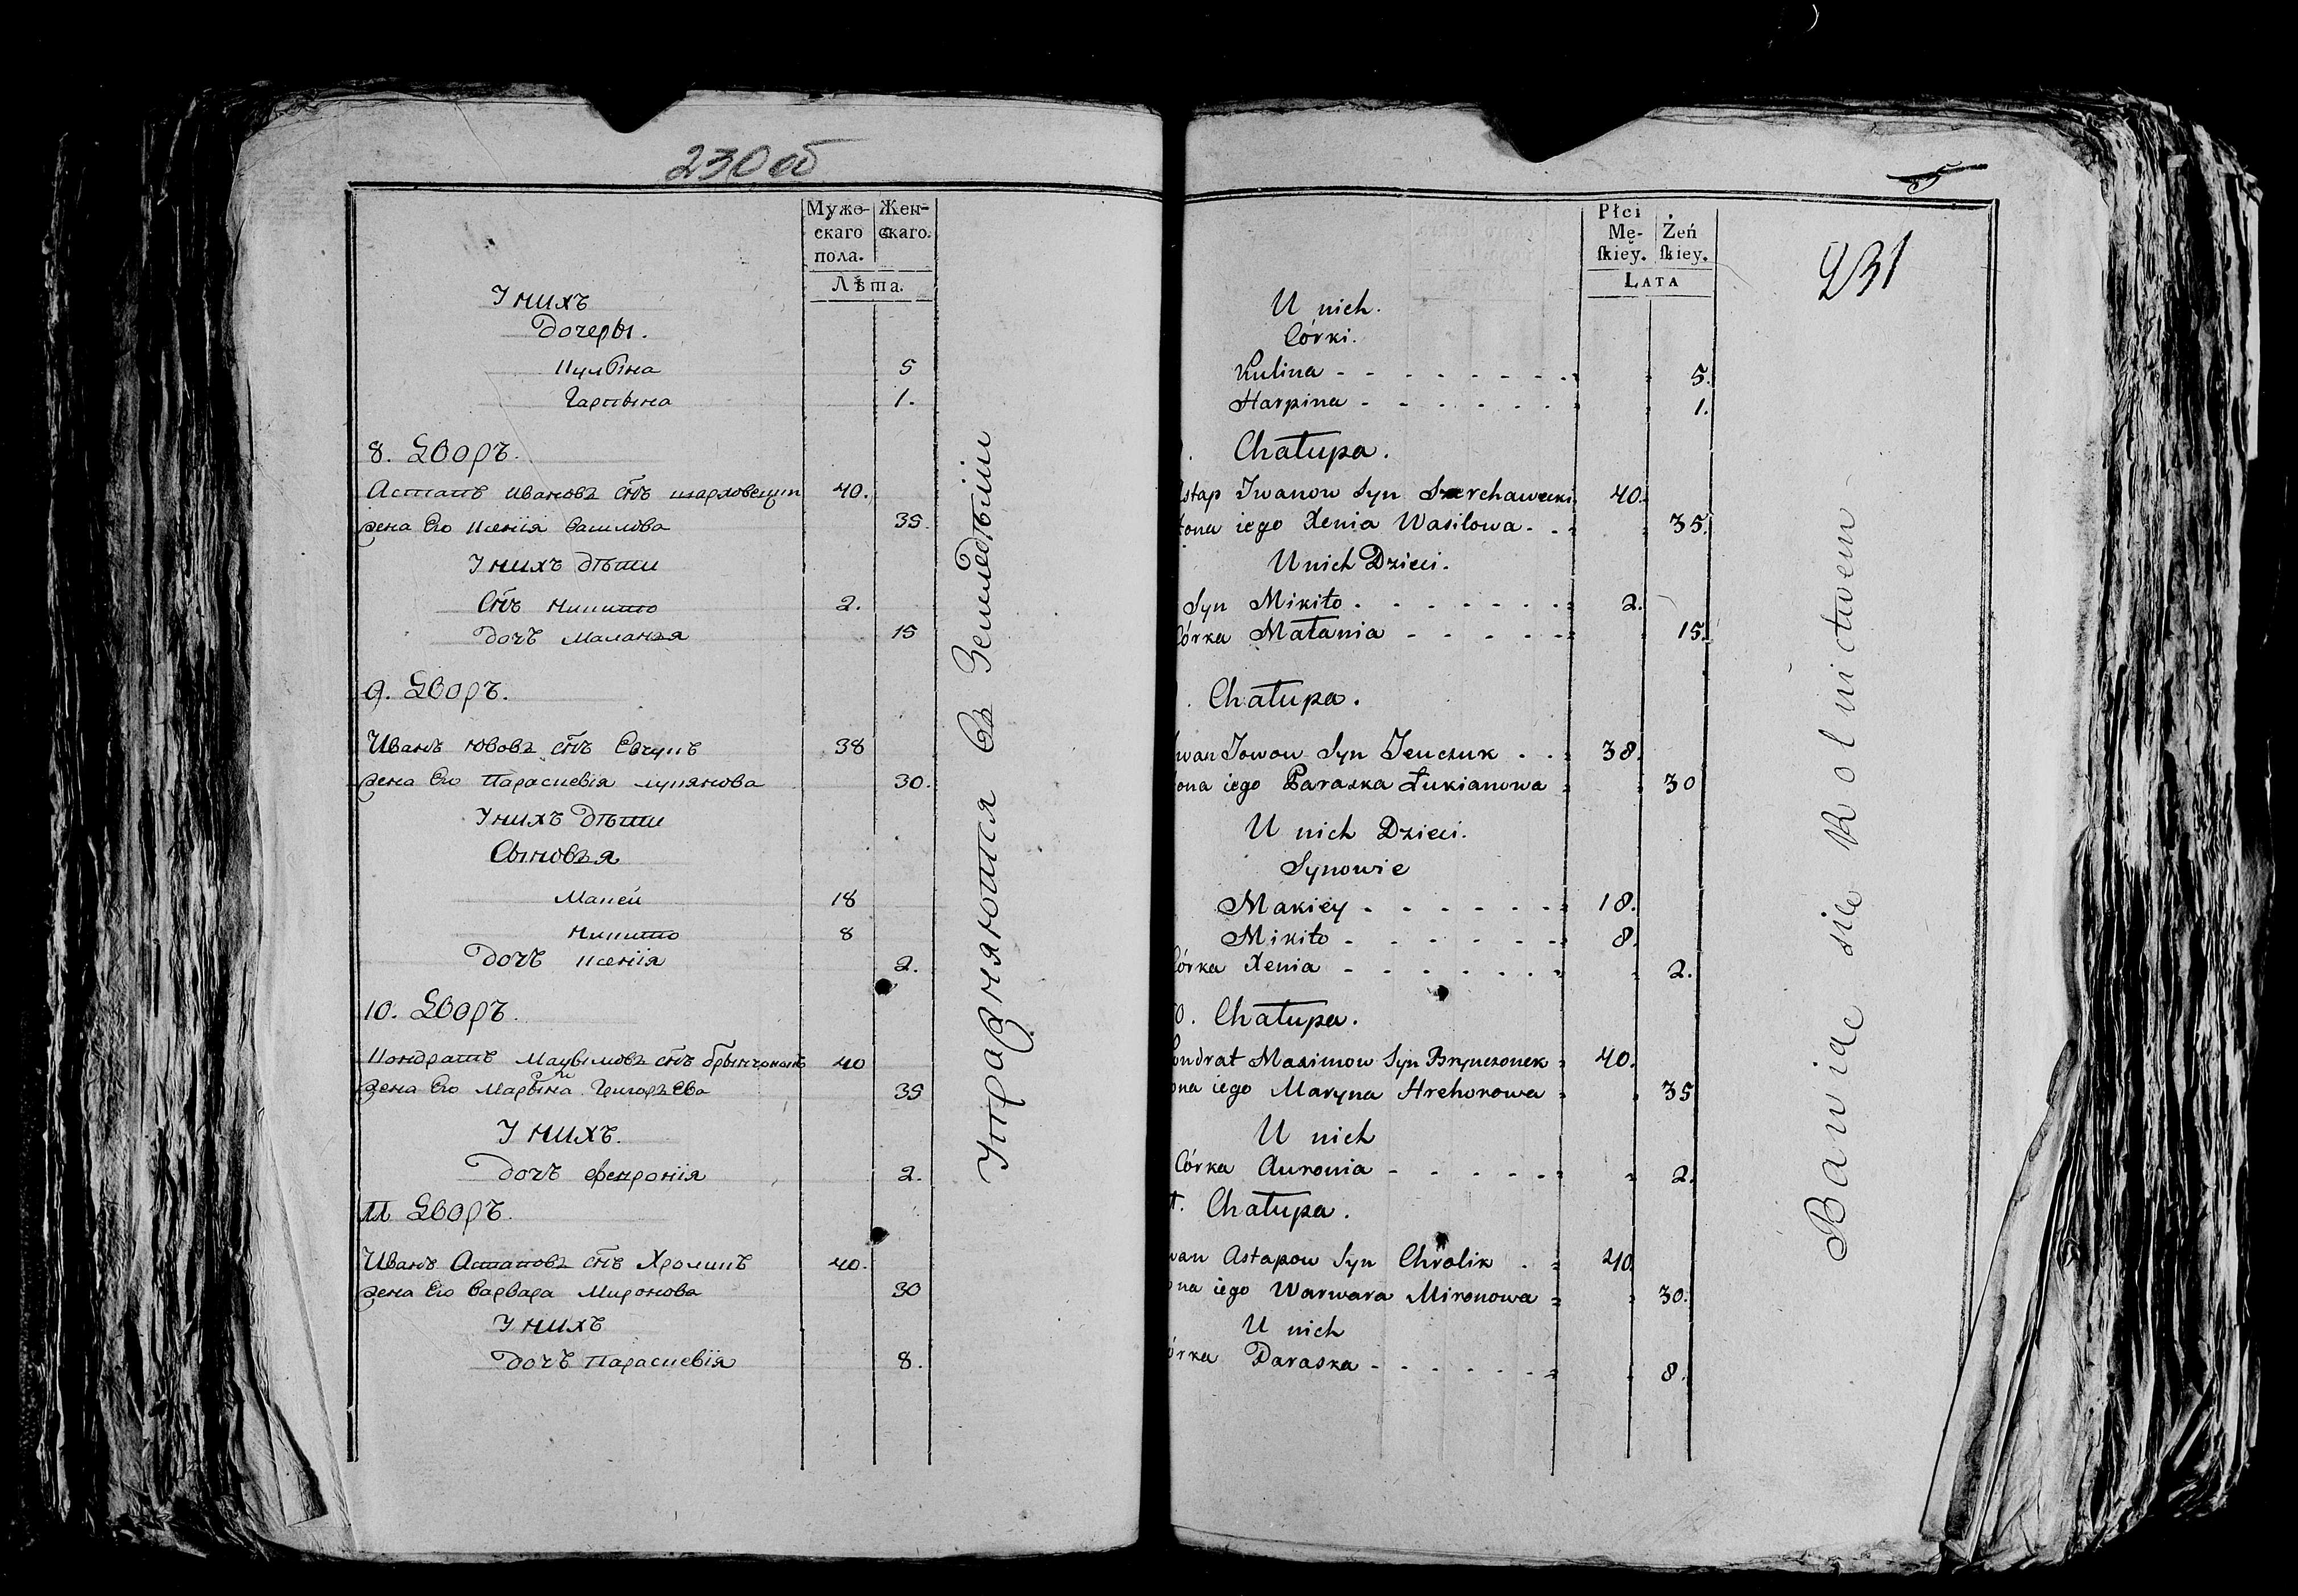 230 об
Муже-
скаго
пола.
Жен-
скаго.
Лѣта.
У нихъ
Дочеры.
Кулiна 5
Гарпына 1.
8. Дворъ.
Астапъ Ивановъ сНъ 40.
жена Его Ксенiя Василова 35.
У нихъ Дѣти
сНъ Микито 2.
Дочь Маланья 15
9. Дворъ.
Иванъ Ювовъ сНъ Евчукъ 38
жена Его Параскевiя Лукянова 30.
У нихъ Дѣти
Сыновья
Макей 18
Микито 8
Дочь Ксенiя 2.
10. Дворъ.
Кондратъ сНъ Брынчонакъ 40
жена Его Марына Григорьева 35
У нихъ.
Дочь Февронiя 2.
11 Дворъ.
Иванъ Астаповъ сНъ 40.
жена Его Варвара Миронова 30
У нихъ
Дочь Параскевiя 8.
Упражняются Въ Земледѣлiи
231
Płci
Mę-
skiey.
Żeń
skiey.
LATA
U nich.
Córki.
Kulina 5.
Harpina 1.
Chałupa.
Astap Iwanow Syn 40.
żona iego Xenia Wasilowa 35.
U nich Dzieci.
Syn Mikito 2.
Córka Małania 15.
Chałupa.
Iwan Jowow Syn Jeuczuk 38.
żona iego Paraska Łukianowa 30
U nich Dzieci.
Synowie
Makiéy 18.
Mikito 8.
Córka Xenia 2.
10. Chałupa.
Kondrat Maximow Syn Brynczonek 40.
żona iego Maryna Hrehorowa 35
U nich
Córka Auronia 2.
Chałupa.
Iwan Astapow Syn Chrolik 40.
żona iego Warwara Mironowa 30.
U nich
Córka Paraska 8.
Bawiąc się Rolnictwem